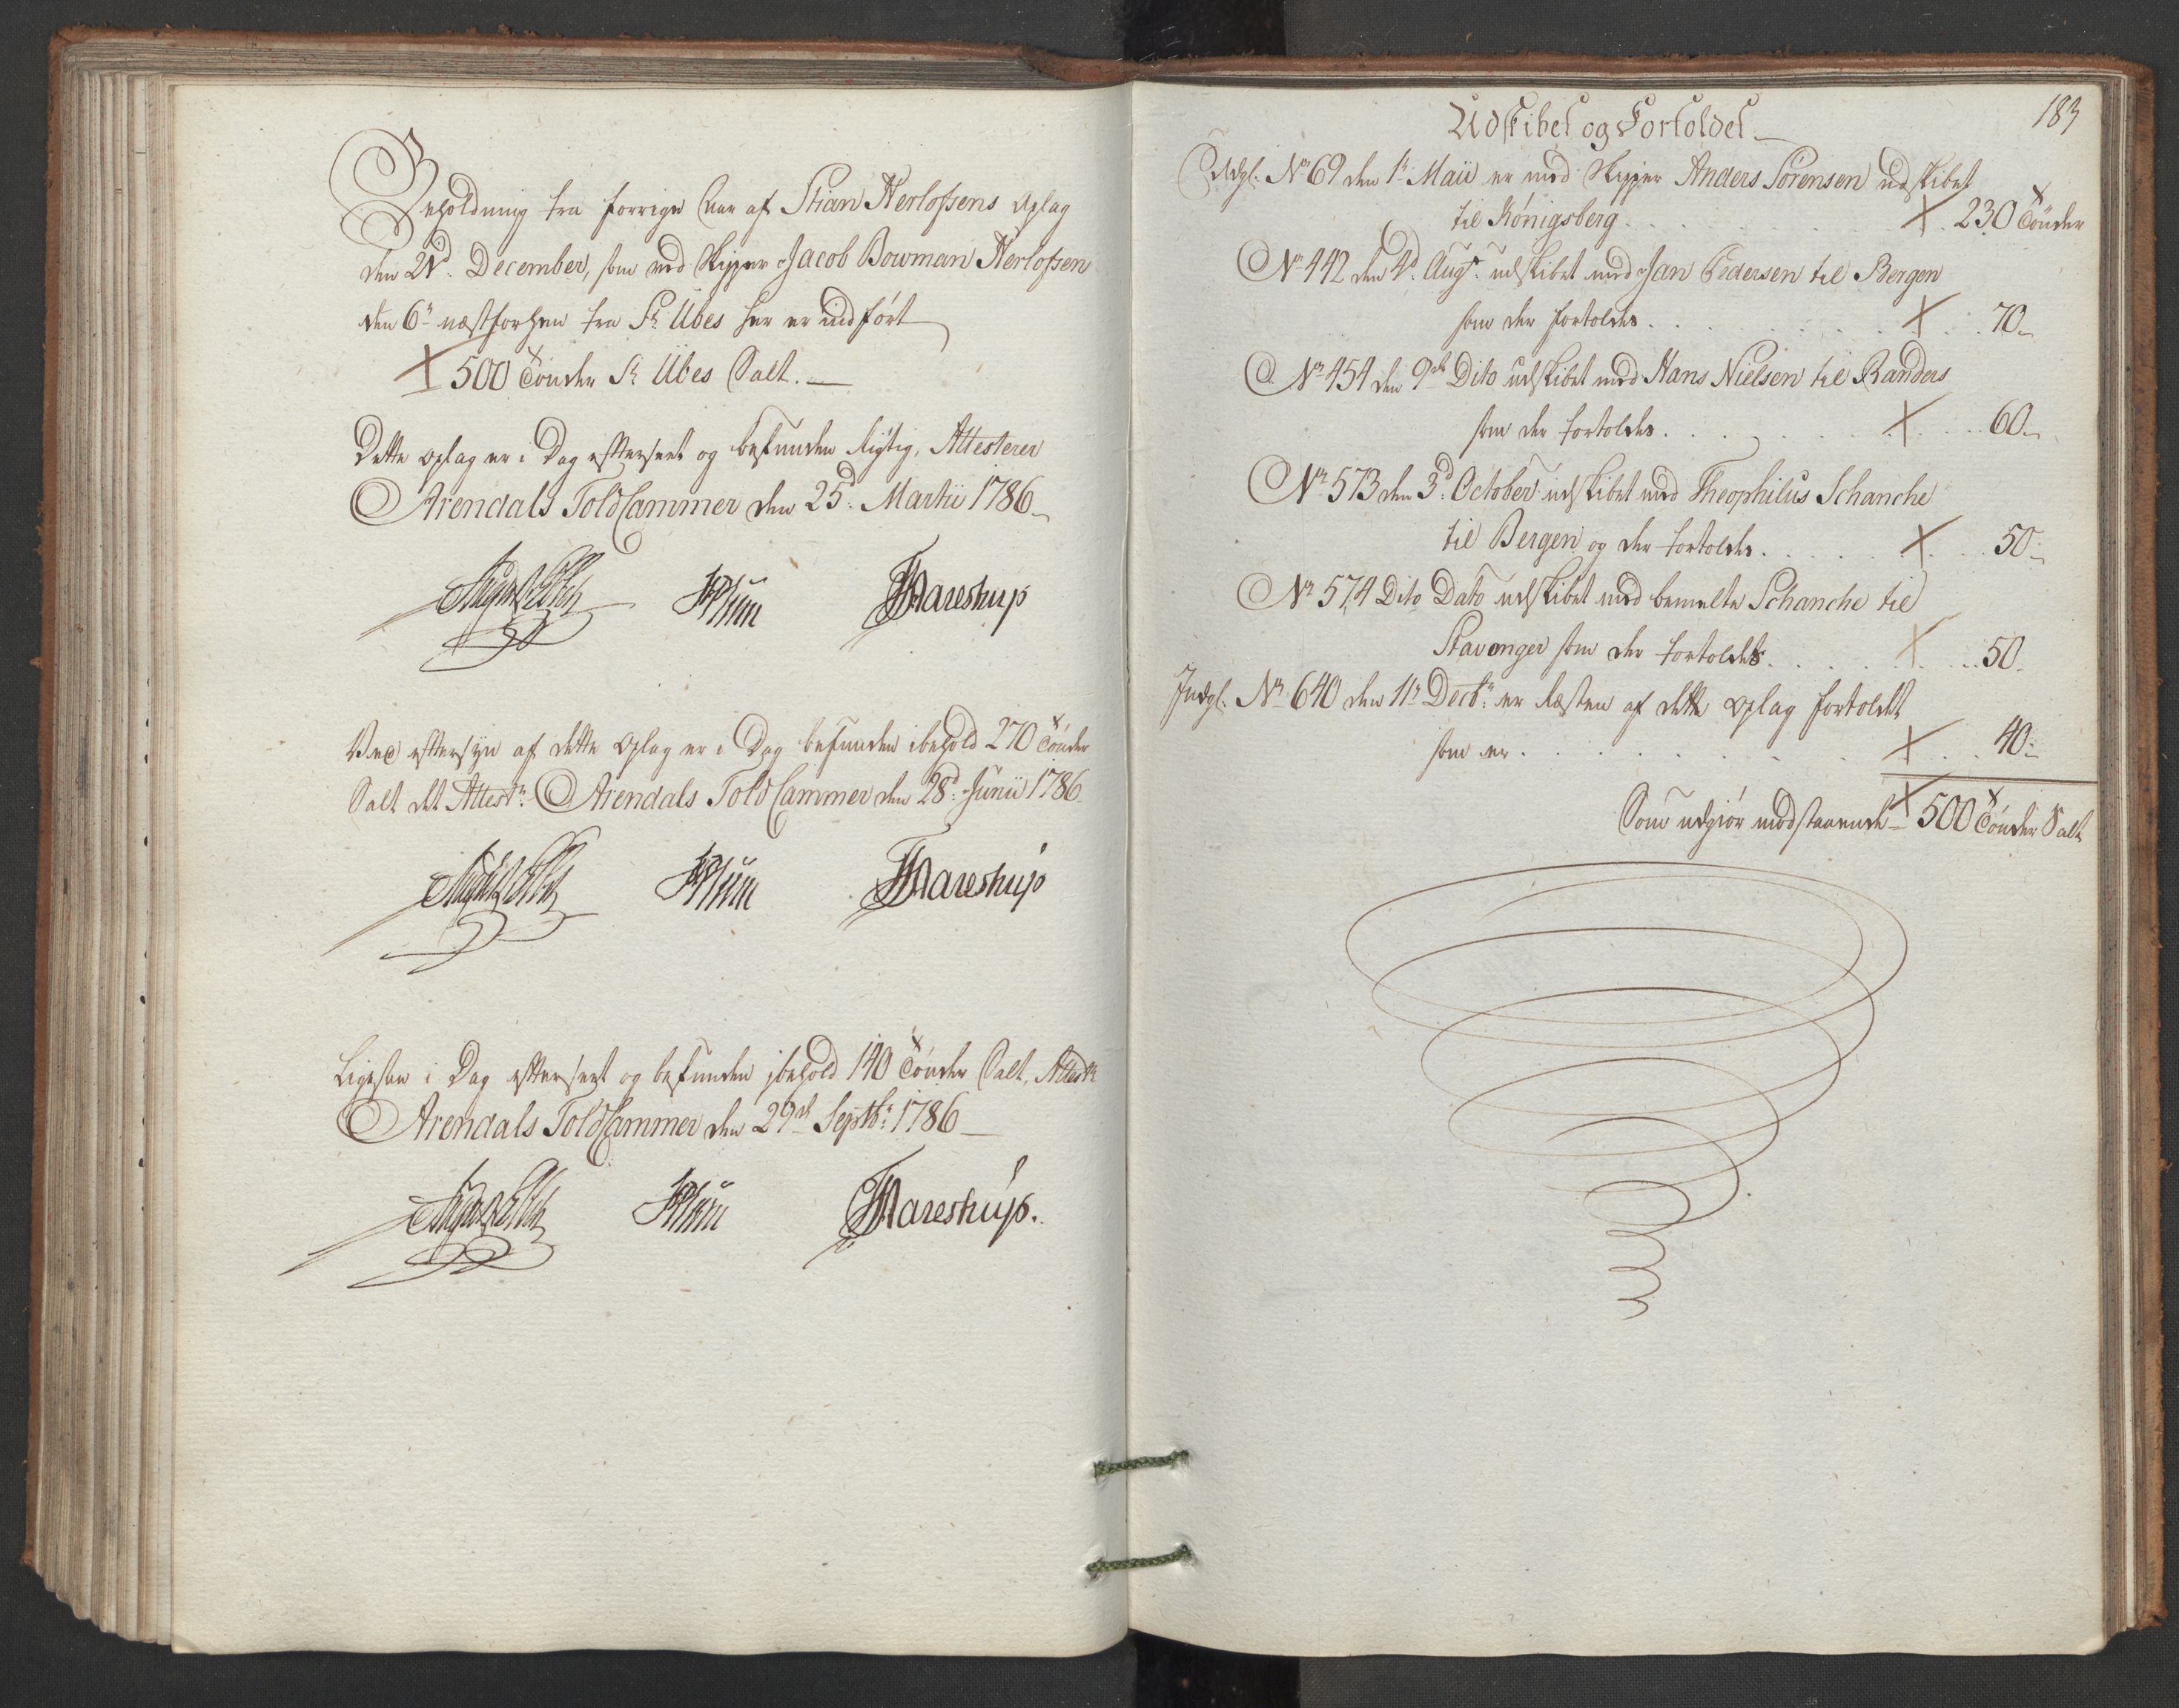 Beholdning fra forrige Aar af Stian Herlofsens Oplag
den 21d. December, som med Skipper Jacob Bowman Herlofsen
den 6te næstforhen fra St. Übes her er indført
500 Tønder St. Übes Salt.
Dette Oplag er i Dag efterseet og befunden rigtig, Attesterer
Arendals Told Cammer den 25d. Martii 1786
JPlum
Mareshup
Ved eftersyn af dette Oplag er i Dag befunden ibehold 270 Tønder
Salt det Attestr. Arendals Told Cammer den 28d. Junii 1786
JPlum
Mareshup
Ligesaa i Dag efterseet og befunden ibehold 140 Tønder Salt, Attestr.
Arendals Told Cammer den 29de Septbr. 1786
JPlum
Mareshup.
183
Udskibet og Fortoldet
Udgl. No 69 den 1te Maii er med Skipper Anders Sørensen udskibet
til Königsberg . . . 230 Tønder
No 442 den 4d. Augs. udskibet med Jan Pedersen til Bergen
som der fortoldes . . . 70
No 454 den 9de Dito udskibet med Hans Nielsen til Randers
som der fortoldes . . . 60
No 573 den 3d. October udskibet med Theophilus Schanche
til Bergen og der fortoldes . . . 50
No 574 Dito Dato udskibet med bemelte Schanche til
Stavanger som der fortoldes . . . 50
Indgl. No 640 den 11te Decbr. er Resten af dette Oplag fortoldet
som er . . . 40
Som udgiør modstaaende 500 Tønder Salt